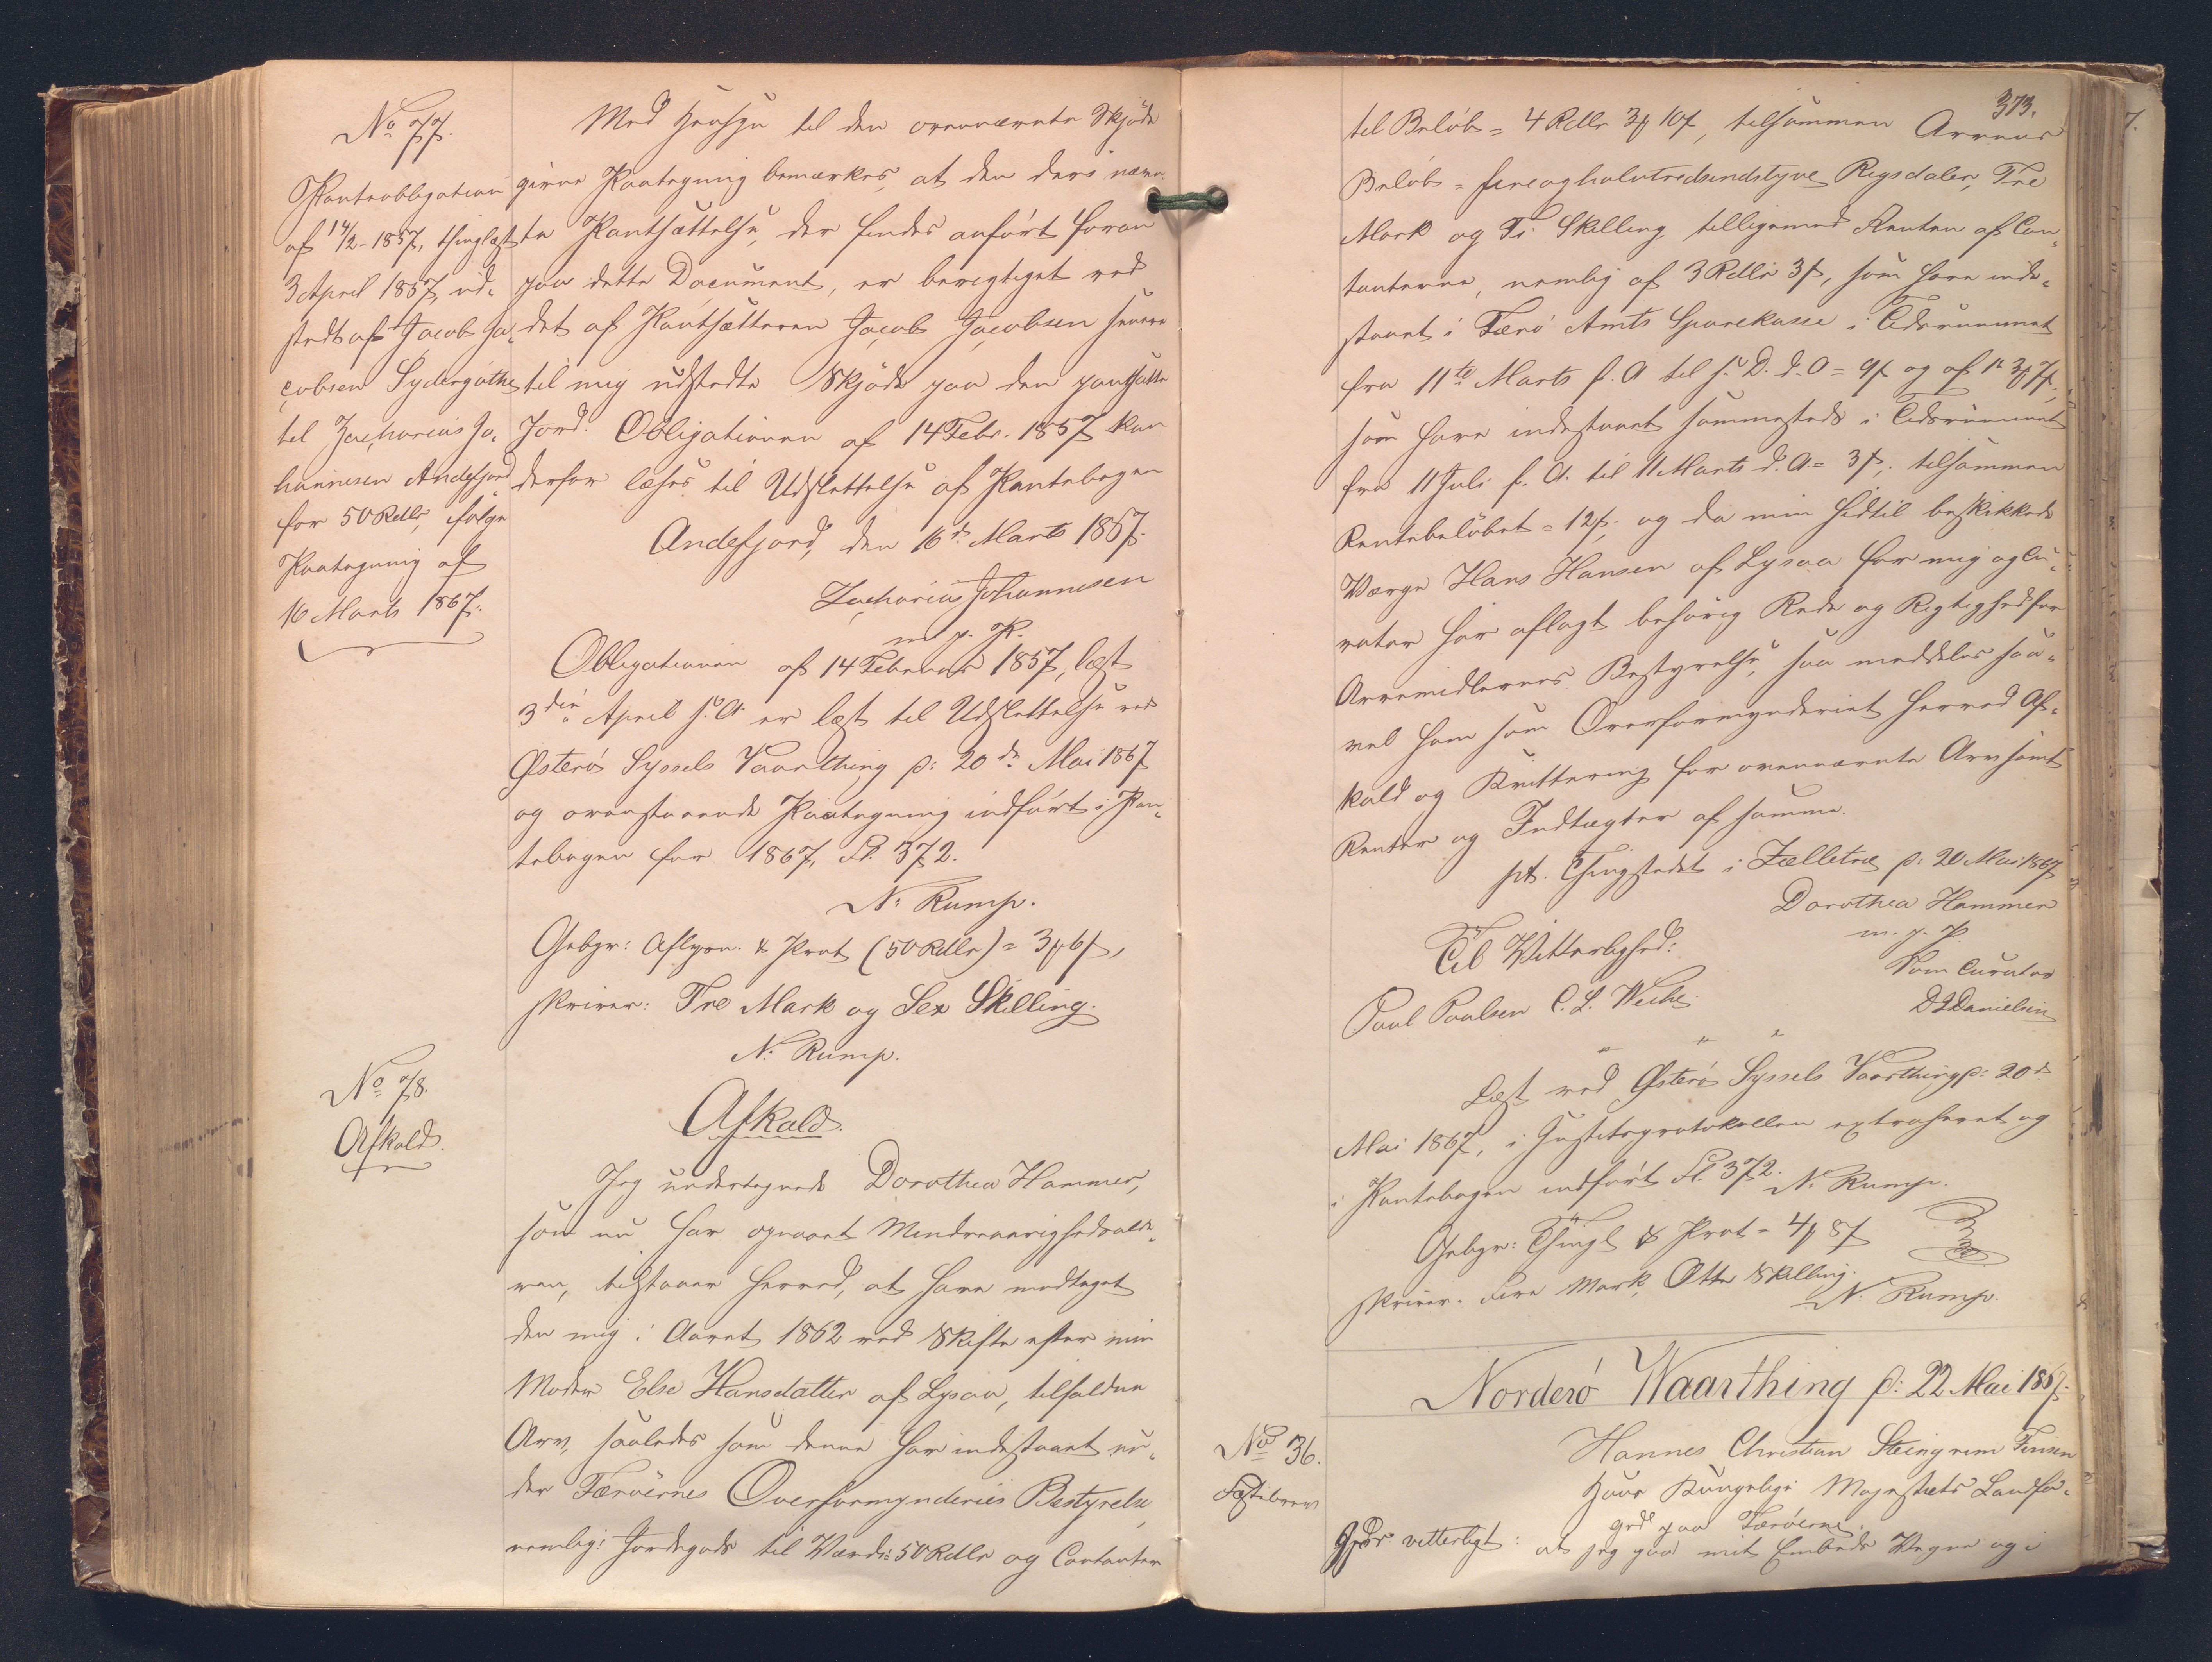 No 77.
Panteobligation
af 14/2-1857, thinglæst
3 April 1857, ud-
stedt af Jacob Ja-
cobsen Sydergøthe
til Zacharias Jo-
hannesen Andefjord
for 50 Rdlr, ifølge
Paategning af
16 Marts 1867.
Med Hensyn til den ovennævnte Skjøde
givne Paategning bemærkes, at den deri nævn-
te Pantsættelse, der findes anført foran
paa dette Document, er berigtiget ved
det af Pantsætteren Jacob Jacobsen senere
til mig udstedte Skjøde paa den pantsatte
Jord. Obligationen af 14 Febr. 1857 kan
derfor læses til Udslettelse af Pantebogen
Andefjord, den 16de Marts 1867.
Zacharias Johannesen
m. p. P.
Obligationen af 14 Februar 1857, læst
3die April s. A. er læst til Udslettelse ved
Østerø Syssels Vaarthing d: 20de Mai 1867
og ovenstaaende Paategning indført i Pan-
tebogen for 1867, Fl. 372.
N. Rump.
Gebyr: Aflysn. & Prot (50 Rdlr) = 3 ₰ 6 β,
skriver: Tre Mark og Sex Skilling.
N. Rump.
No 78.
Afkald.
Afkald.
Jeg undertegnede Dorothea Hammer,
som nu har opnaaet Mindreaarighedsalde-
ren, tilstaaer herved, at have modtaget
den mig i Aaret 1862 ved Skifte efter min
Moder Else Hansdatter af Lysaa, tilfaldne
Arv, saaledes som denne har indestaaet un-
der Færøernes Overformynderies Bestyrelse,
nemlig: Jordegods til Værdi: 50 Rdlr og Contanter
373.
til Beløb = 4 Rdlr 3 ₰ 10 β, tilsammen Arvens
Beløb = fireoghalvtredsindstyve Rigsdaler, Tre
Mark og Ti Skilling tilligemed Renten af Con-
tanterne, nemlig af 3 Rdlr 3 β, som have inde-
staaet i Færø Amts Sparekasse i Tidsrummet
fra 11te Marts f. A til s. D. d. A = 9 β og af 1 rd 3 ₰ 7 β,
som have indestaaet sammesteds i Tidsrummet
fra 11 Juli f. A. til 11 Marts d. A. = 3 β,: tilsammen
Rentebeløbet = 12 β; og da min hidtil beskikkede
Værge Hans Hansen af Lysaa for mig og Cu-
rator har aflagt behørig Rede og Rigtighed for
Arvemidlernes Bestyrelse, saa meddeles saa-
vel ham som Overformynderiet herved Af-
kald og Kvittering for ovennævnte Arv samt
Renter og Indtægter af samme.
pt. Thingstedet i Fælletræ d: 20 Mai 1867
Dorothea Hammer
m. p. P.
Til Vitterlighed:
Som Curator
Poul Poulsen C. L. Weihe.
D J Danielsen
Læst ved Østerø Syssels Vaarthing d: 20de
Mai 1867, i Justitsprotokollen extraheret og
i Pantebogen indført Fl. 372. N. Rump.
Gebyr: Thingl & Prot = 4 ₰ 8 β
skriver: Fire Mark, Otte Skilling.
N. Rump.
Norderø Waarthing d: 22 Mai 1867.
No 36.
Fæstebrev
Hannes Christian Steingrim Finsen
Hans Kongelige Majestæts Landfo-
ged paa Færøerne,
Gjør vitterligt: at jeg paa mit Embeds Vegne og i